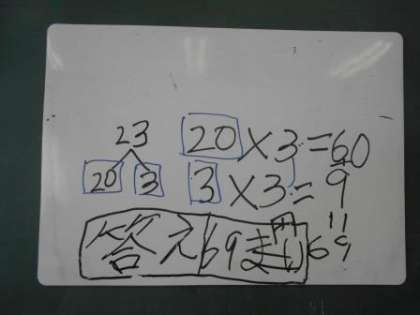 23
20 3
20×3=60
3×3=9
11
答え69まい 69